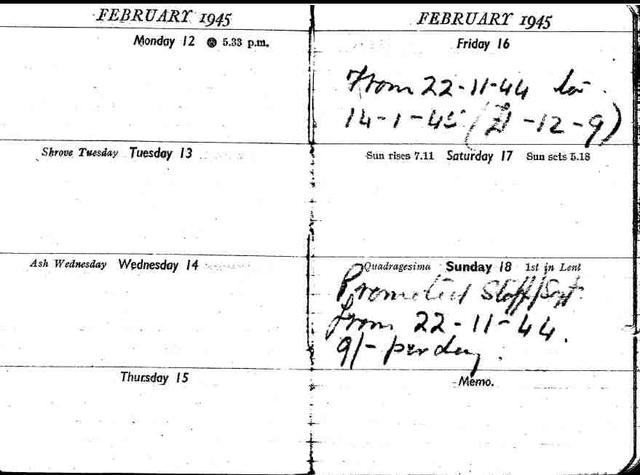 FEBRUARY 1945
Monday 12 5.33 p.m.
Shrove Tuesday Tuesday 13
Ash Wednesday Wednesday 14
Thursday 15
FEBRUARY 1945
Friday 16
From 22-11-44 to
14-1-45 (£1-12-9)
Sun rises 7.11 Saturday 17 Sun sets 5.18
Quadragesima Sunday 18 1st in Lent
Promoted Staff/Sgt.
from 22-11-44.
9/- per day.
Memo.